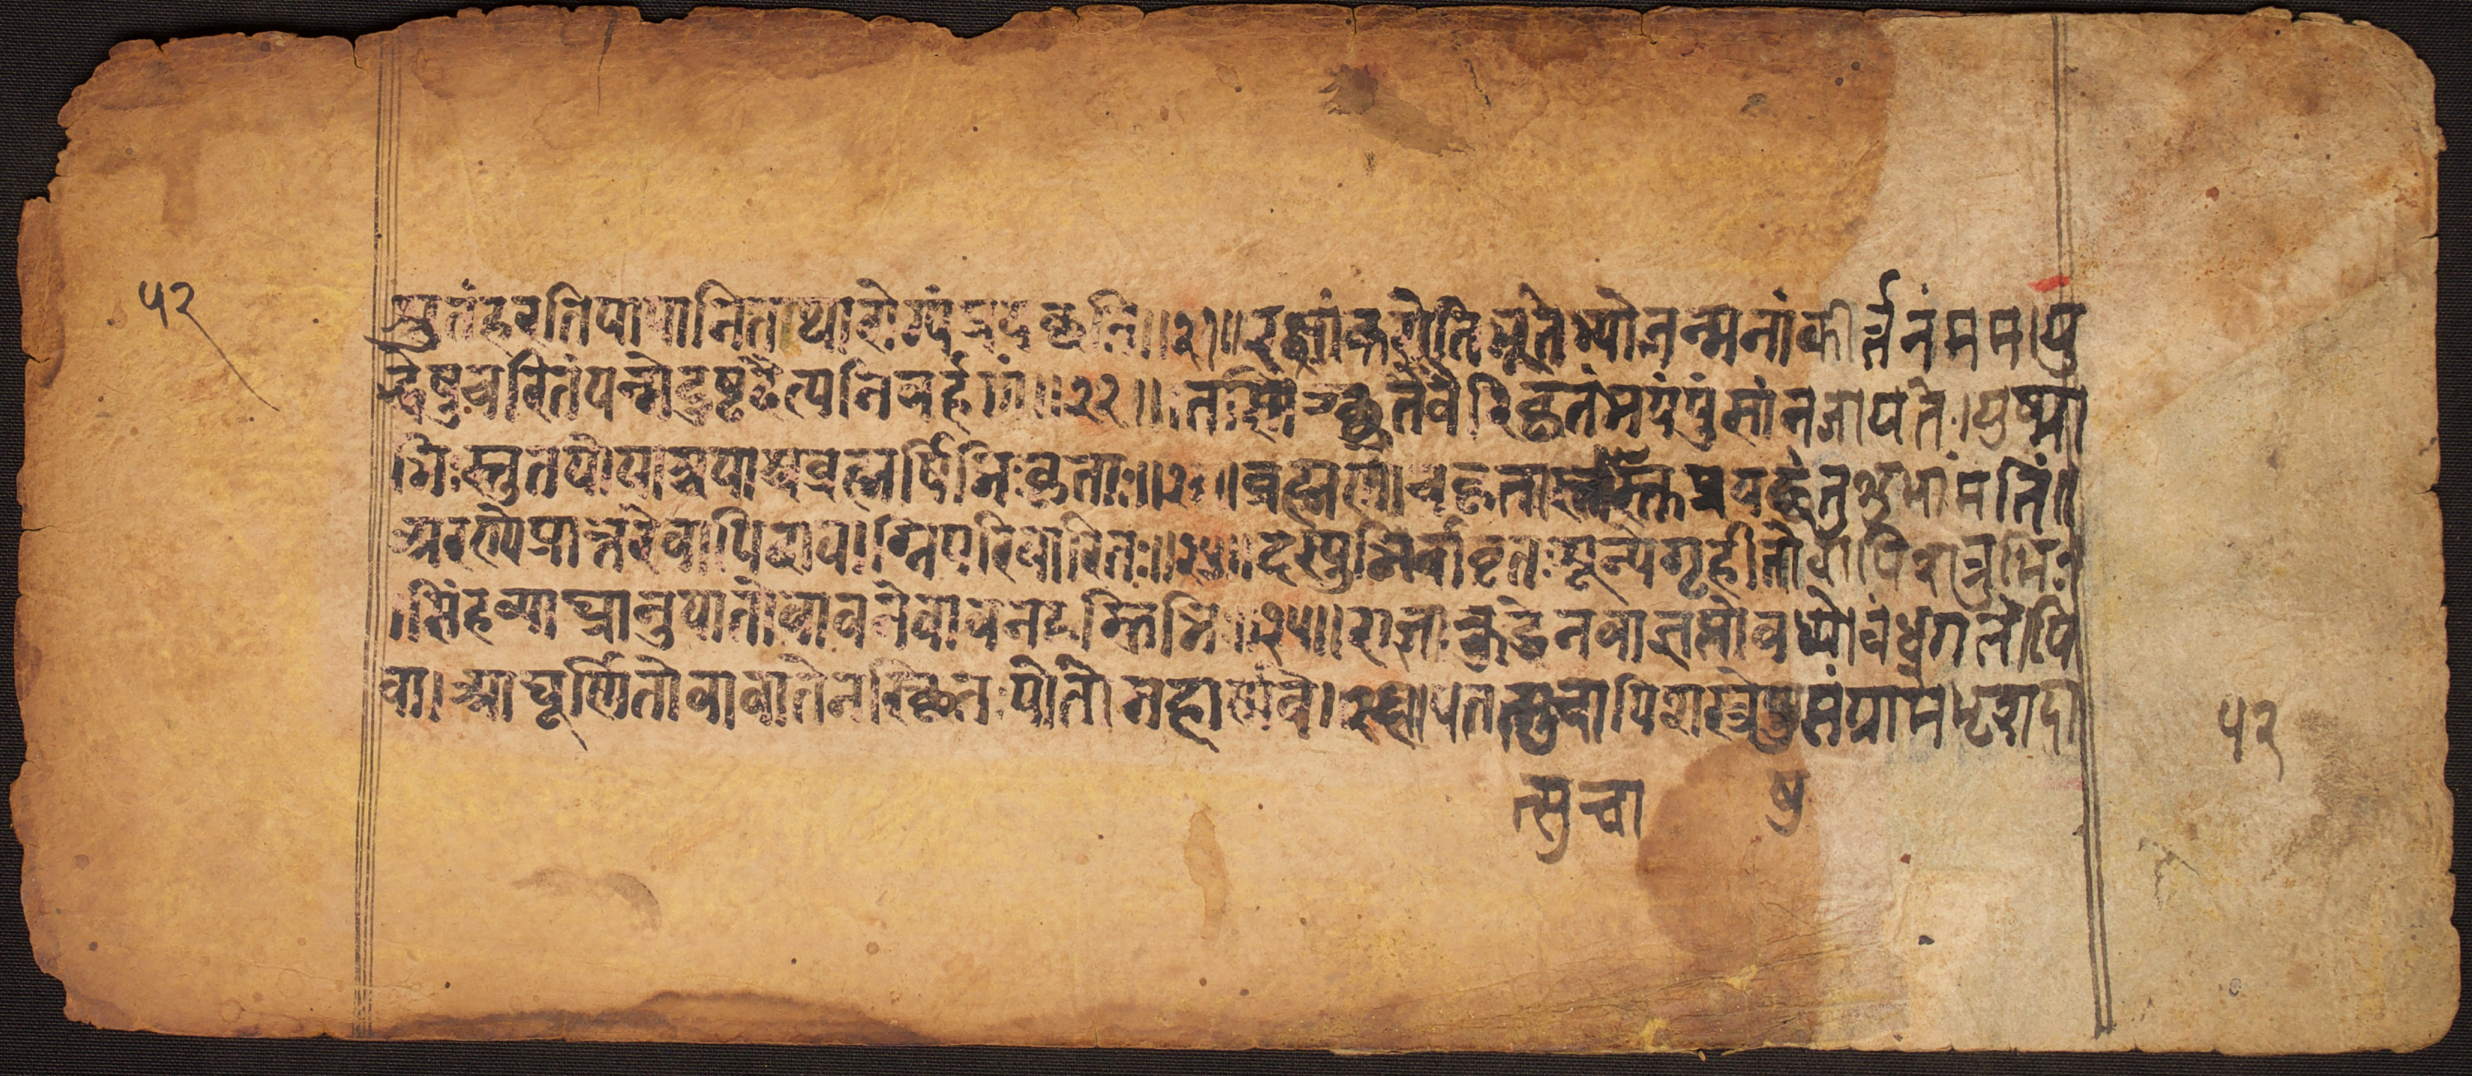 ५२
श्रुतंहरतिपापानितथारोग्यंप्रयछति॥२१॥रक्षांकरोतिभूतेभ्योजन्मनांकीर्त्तनंमम।यु
द्धेषुचरितंयन्मेदुष्टदैत्यनिबर्हणं॥२२॥तस्मिंच्छ्रुतेवैरिकृतंभयंपुंसांनजायते।युष्मा
भिःस्तुतयोयाश्चयाश्चब्रह्मर्षिभिःकृताः॥२३॥ब्रह्मणाचकृतास्तास्तुप्रयछंतुशुभांमतिं।
अरण्येप्रान्तरेवापिदावाग्निपरिवारितः॥२४॥दस्युभिर्वावृतःशून्येगृहीतोवापिशत्रुभिः
।सिंहव्याघ्रानुयातोवावनेवावनहस्तिभिः॥२५॥राज्ञाक्रुद्धेनवाज्ञप्तोवध्योबंधगतोपि
वा।आघूर्णितोवावातेनस्थितःपोतेमहार्णवे।२६॥पतत्सुचापिशस्त्रेषुसंग्रामेभृशदा
५२
त्सुचा षु